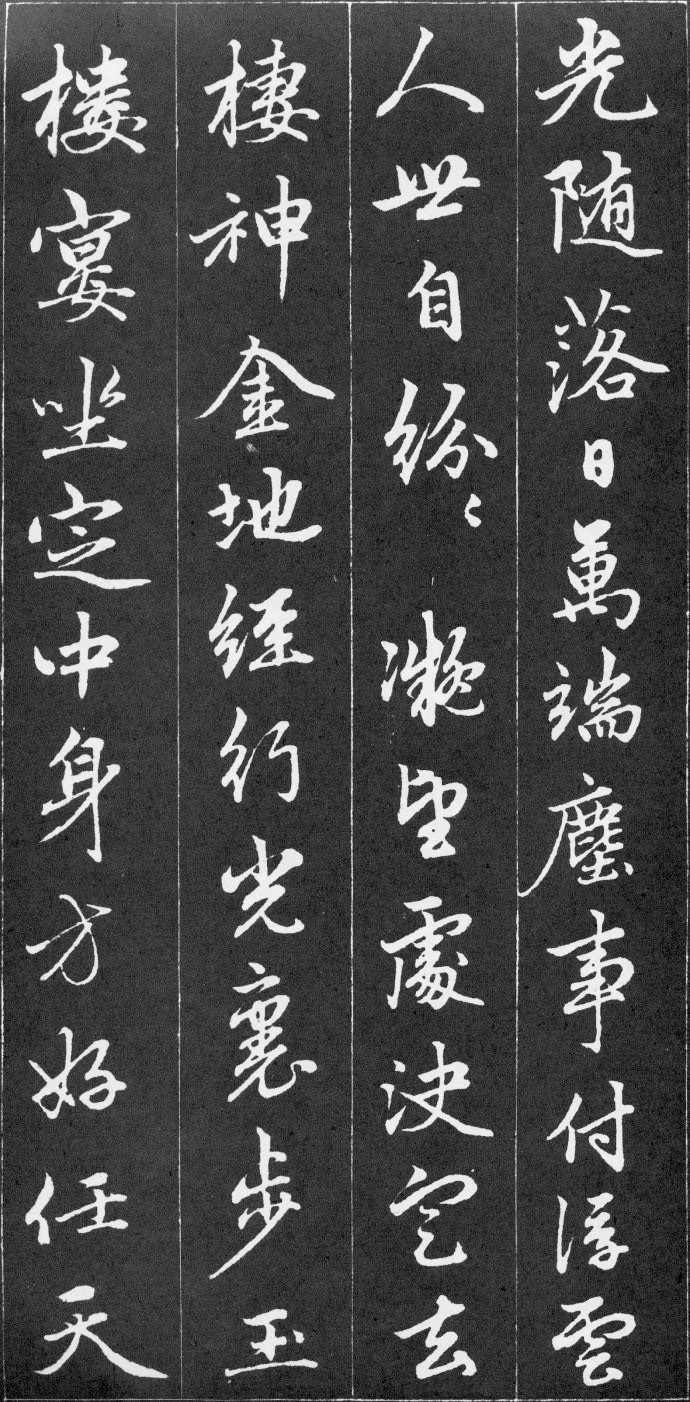 光随落日萬端塵事付浮雲
人世自紛〻凝望處決定去
棲神金地經行光裏步玉
樓宴坐定中身方好任天